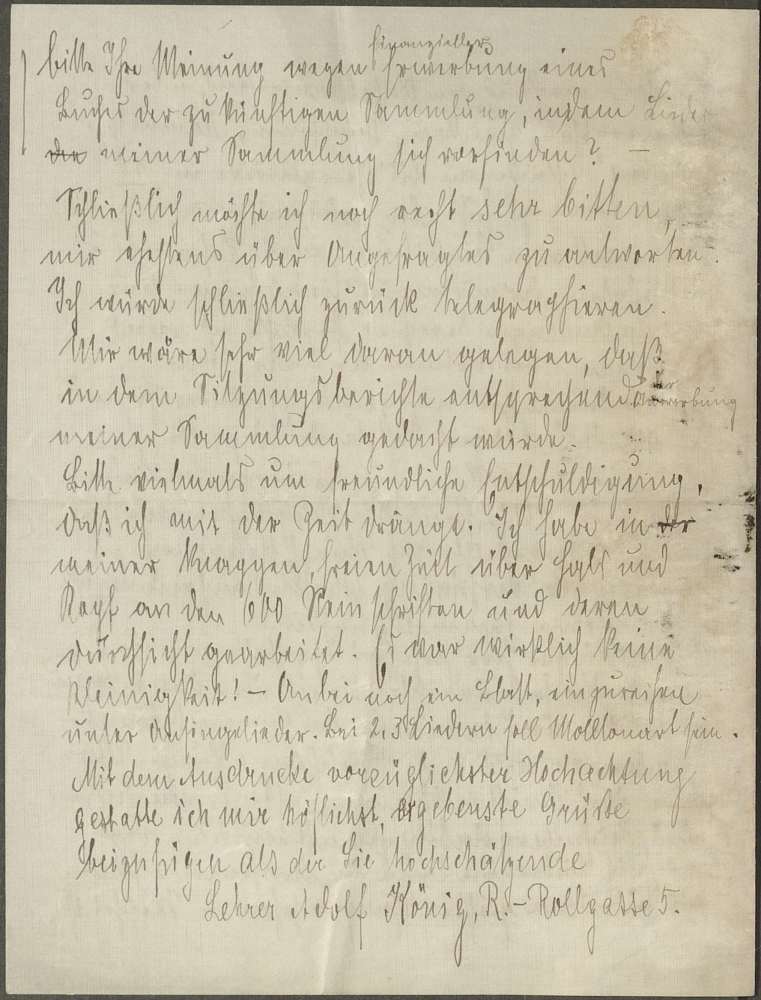 bitte Ihre Meinung wegen finanzieller Erwerbung eines
Buches der zukünftigen Sammlung, in dem Lieder
die meiner Sammlung sich vorfinden? —
Schließlich möchte ich noch recht sehr bitten,
mir ehestens über Angefragtes zu antworten.
Ich würde schließlich zurück telegraphieren.
Mir wäre sehr viel daran gelegen, daß
in dem Sitzungsberichte entsprechend der Anwerbung
meiner Sammlung gedacht würde.
Bitte vielmals um freundliche Entschuldigung,
daß ich mit der Zeit dränge. Ich habe in der
meiner knappen, freien Zeit über Hals und
Kopf an den 600 Reinschriften und deren
Durchsicht gearbeitet. Es war wirklich keine
Kleinigkeit! – Anbei noch ein Blatt, einzureihen
unter Ansingelieder. Bei 2, 3 Liedern soll Molltonart sein.
Mit dem Ausdrucke vorzüglichster Hochachtung
gestatte ich mir höflichst, ergebenste Grüße
beizufügen als der Sie hochschätzende
Lehrer Adolf König, R.– Rollgasse 5.